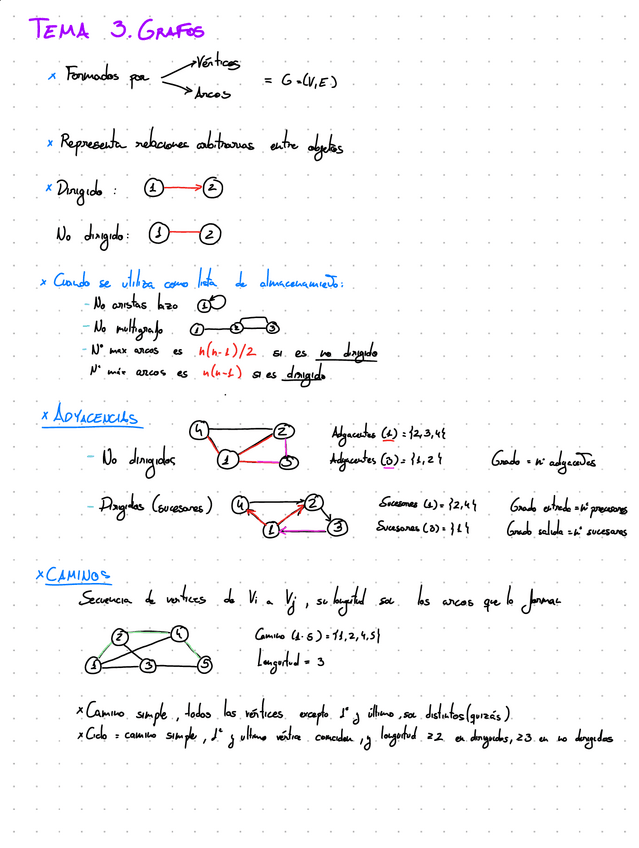 TEMA 3. GRAFOS
x Formados por Vértices Arcos = G=(V,E)
x Representa relaciones arbitrarias entre objetos
x Dirigido: 1 2
No dirigido: 1 2
x Cuando se utiliza como lista de almacenamiento:
- No aristas lazo 1
- No multigrafo 1 2 3
- Nº max arcos es n(n-1)/2 si es no dirigido
Nº máx arcos es n(n-1) si es dirigido
x ADYACENCIAS
- No dirigidos 4 2 1 3 Adyacentes (1) = {2,3,4}
Adyacentes (3) = {1,2} Grado = nº adyacentes
- Dirigidos (sucesores) 4 2 1 3 Sucesores (1) = {2,4} Grado entrada = nº precesores
Sucesores (3) = {1} Grado salida = nº sucesores
x CAMINOS
Secuencia de vertices de Vi a Vj, su longitud son los arcos que lo forman
2 4 1 3 5 Camino (1-5) = {1,2,4,5}
Longitud = 3
x Camino simple, todos los vértices excepto 1º y último, son distintos (quizás)
x Ciclo = camino simple, 1º y ultimo vértice coinciden, y longitud ≥2 en dirigidos, ≥3 en no dirigidos